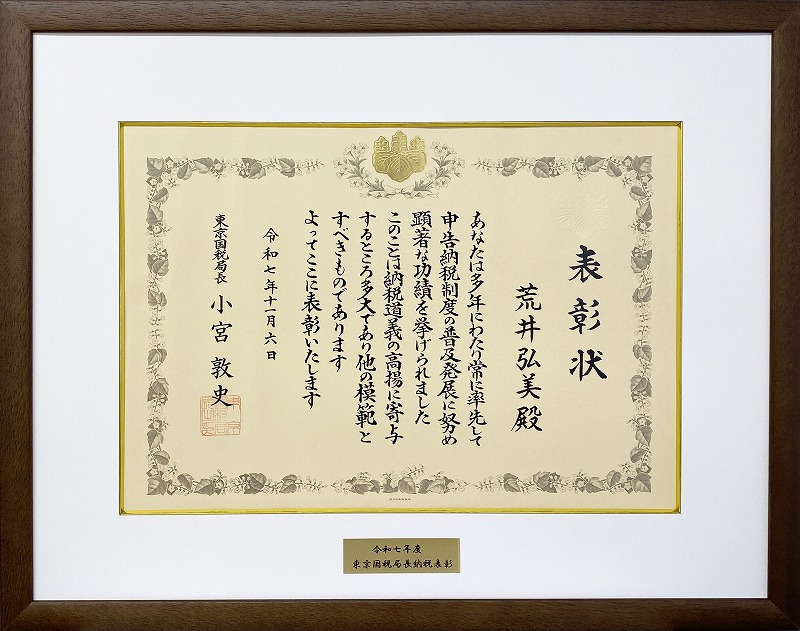 表彰状
荒井弘美殿
あなたは多年にわたり常に率先して
申告納税制度の普及発展に努め
顕著な功績を挙げられました
このことは納税道義の高揚に寄与
するところ多大であり他の模範と
すべきものであります
よってここに表彰いたします
令和七年十一月六日
東京国税局長 小宮敦史
令和七年度
東京国税局長納税表彰